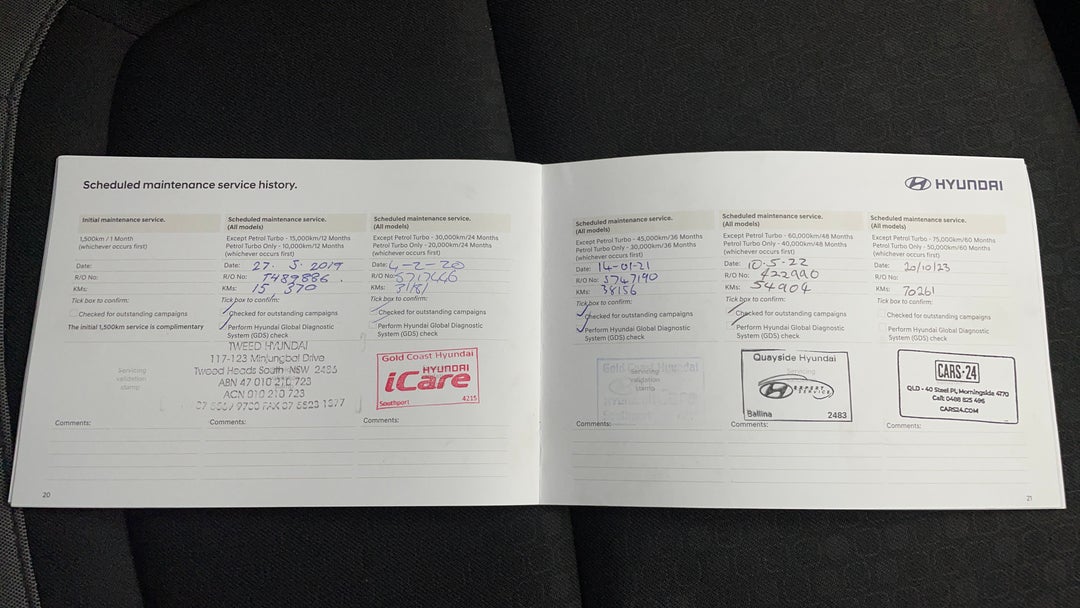 Scheduled maintenance service history.
Initial maintenance service.
1,500km / 1 Month
(whichever occurs first)
Date:
R/O No:
KMs:
Tick box to confirm:
Checked for outstanding campaigns
The initial 1,500km service is complimentary
Servicing
validation
stamp
Comments:
Scheduled maintenance service.
(All models)
Except Petrol Turbo - 15,000km/12 Months
Petrol Turbo Only - 10,000km/12 Months
(whichever occurs first)
Date: 27. 5. 2019
R/O No: T489886.
KMs: 15 370
Tick box to confirm:
Checked for outstanding campaigns
Perform Hyundai Global Diagnostic
System (GDS) check
TWEED HYUNDAI
117-123 Minjungbal Drive
Tweed Heads South NSW 2486
ABN 47 010 210 723
ACN 010 210 723
Comments:
Scheduled maintenance service.
(All models)
Except Petrol Turbo - 30,000km/24 Months
Petrol Turbo Only - 20,000km/24 Months
(whichever occurs first)
Date: 4-2-20
R/O No: 5717446
KMs: 31181
Tick box to confirm:
Checked for outstanding campaigns
Perform Hyundai Global Diagnostic
System (GDS) check
Gold Coast Hyundai
HYUNDAI
iCare
Southport 4215
Comments:
20
HYUNDAI
Scheduled maintenance service.
(All models)
Except Petrol Turbo - 45,000km/36 Months
Petrol Turbo Only - 30,000km/36 Months
(whichever occurs first)
Date: 14-01-21
R/O No: 5747190
KMs: 38156
Tick box to confirm:
Checked for outstanding campaigns
Perform Hyundai Global Diagnostic
System (GDS) check
Gold Coast Hyundai
Servicing
validation
stamp
Southport
Comments:
Scheduled maintenance service.
(All models)
Except Petrol Turbo - 60,000km/48 Months
Petrol Turbo Only - 40,000km/48 Months
(whichever occurs first)
Date: 10.5.22
R/O No: 422990
KMs: 54904
Tick box to confirm:
Checked for outstanding campaigns
Perform Hyundai Global Diagnostic
System (GDS) check
Quayside Hyundai
Servicing
EXPERT
SERVICE
Ballina 2483
Comments:
Scheduled maintenance service.
(All models)
Except Petrol Turbo - 75,000km/60 Months
Petrol Turbo Only - 50,000km/60 Months
(whichever occurs first)
Date: 20/10/23
R/O No:
KMs: 70261
Tick box to confirm:
Checked for outstanding campaigns
Perform Hyundai Global Diagnostic
System (GDS) check
CARS·24
QLD - 40 Steel Pl, Morningside 4170
Call: 0488 825 496
CARS24.COM
Comments:
21